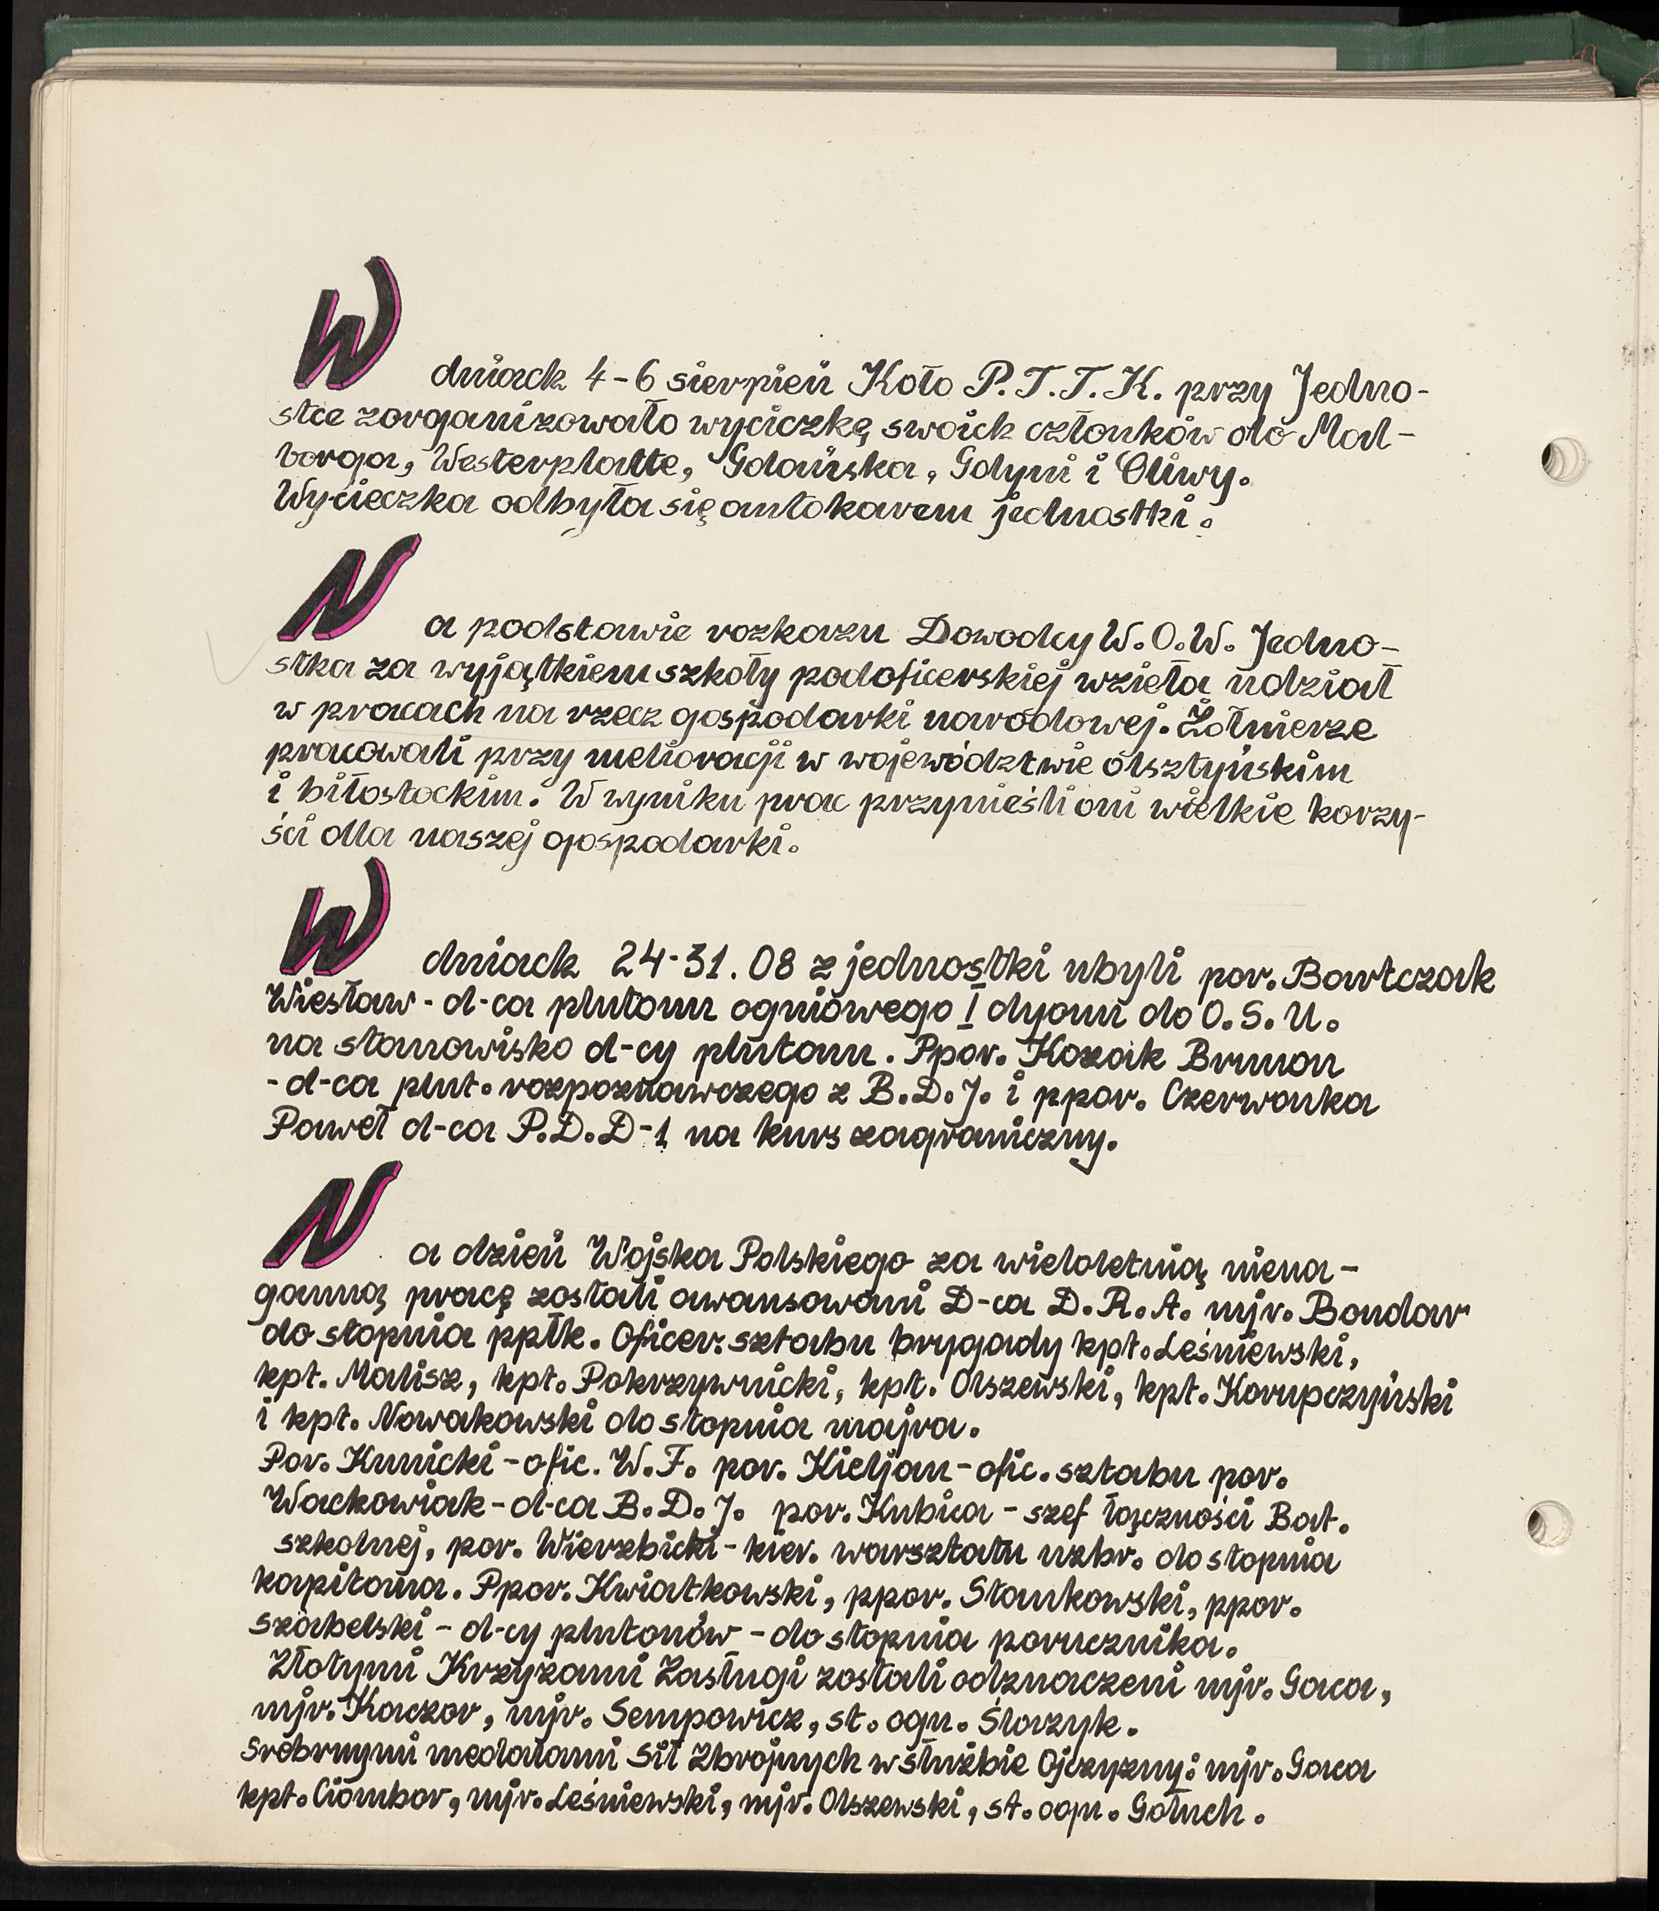 W dniach 4-6 sierpień Koło P.T.T.K. przy Jedno-
stce zorganizowało wyciczkę swoich członków do Mal-
borga, Westerplatte, Gdańska, Gdyni i Oliwy.
Wycieczka odbyła się autokarem jednostki.
Na podstawie rozkazu Dowodcy W.O.W. Jedno-
stka za wyjątkiem szkoły podoficerskiej wzieła udział
w pracach na rzecz gospodarki narodowej. Żołnierze
pracowali przy melioracji w województwie olsztyńskim
i biłostockim. W wyniku prac przynieśli oni wielkie korzy-
ści dla naszej gospodarki.
W dniach 24-31.08 z jednostki ubyli por. Bartczak
Wiesław - d-ca plutonu ogniowego I dyonu do O.S.U.
na stanowisko d-cy plutonu. Ppor. Kozak Brunon
- d-ca plut. rozpoznawczego z B.D.J. i ppor. Czerwonka
Paweł d-ca P.D.D-1 na kurs zagraniczny.
Na dzień Wojska Polskiego za wieloletnią niena-
ganną pracę zostali awansowani D-ca D.R.A. mjr. Bondar
do stopnia ppłk. Oficer. sztabu brygady kpt. Leśniewski,
kpt. Malisz, kpt. Pokrzywnicki, kpt. Olszewski, kpt. Korupczyński
i kpt. Nowakowski do stopnia majra.
Por. Kunicki - ofic. W.F. por. Kieljan - ofic. sztabu por.
Wackowiak - d-ca B.D.J. por. Kubica - szef łączności Bat.
szkolnej, por. Wierzbicki - kier. warsztatu uzbr. do stopnia
kapitana. Ppor. Kwiatkowski, ppor. Stankowski, ppor.
Szabelski - d-cy plutonów - do stopnia porucznika.
Złotymi Krzyżami Zasługi zostali odznaczeni mjr. Gaca,
mjr. Kaczor, mjr. Sempowicz, st. ogn. Ślazyk.
Srebrnymi medalami Sił Zbrojnych w służbie Ojczyzny: mjr. Gaca
kpt. Ciombor, mjr. Leśniewski, mjr. Olszewski, st. ogn. Gołuch.